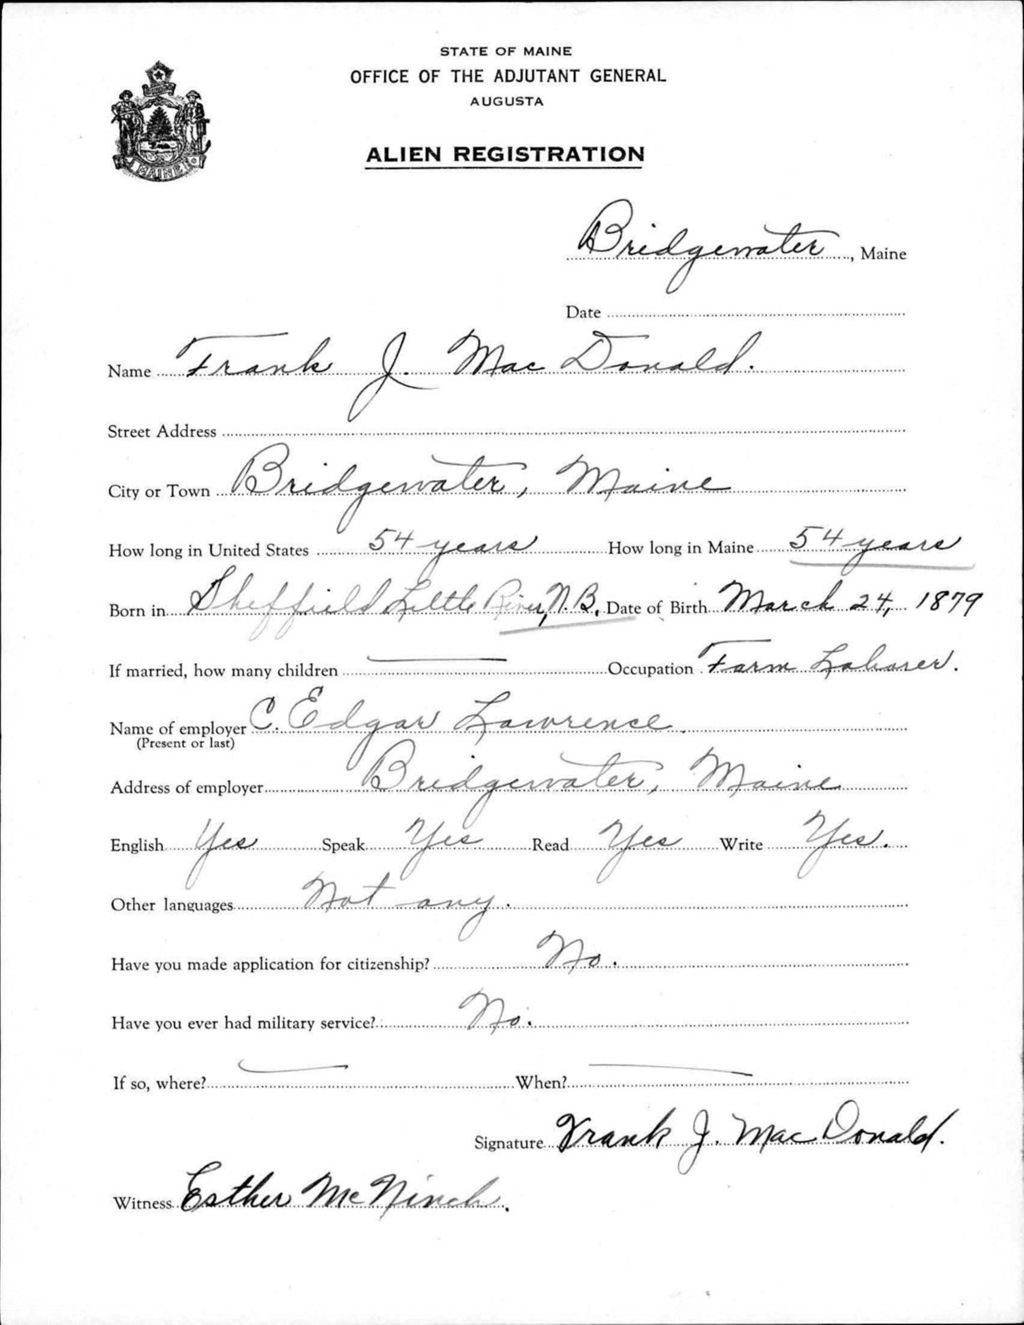 STATE OF MAINE
OFFICE OF THE ADJUTANT GENERAL
AUGUSTA
ALIEN REGISTRATION
MAINE
Bridgewater, Maine
Date
Name Frank J. MacDonald.
Street Address
City or Town Bridgewater, Maine
How long in United States 54 years How long in Maine 54 years
Born in Sheffield Little River, N.B. Date of Birth March 24, 1879
If married, how many children Occupation Farm Laborer.
Name of employer C. Edgar Lawrence
(Present or last)
Address of employer Bridgewater, Maine
English Yes Speak Yes Read Yes Write Yes.
Other languages Not any.
Have you made application for citizenship? No.
Have you ever had military service? No.
If so, where? When?
Signature Frank J. MacDonald.
Witness Esther McNinch.